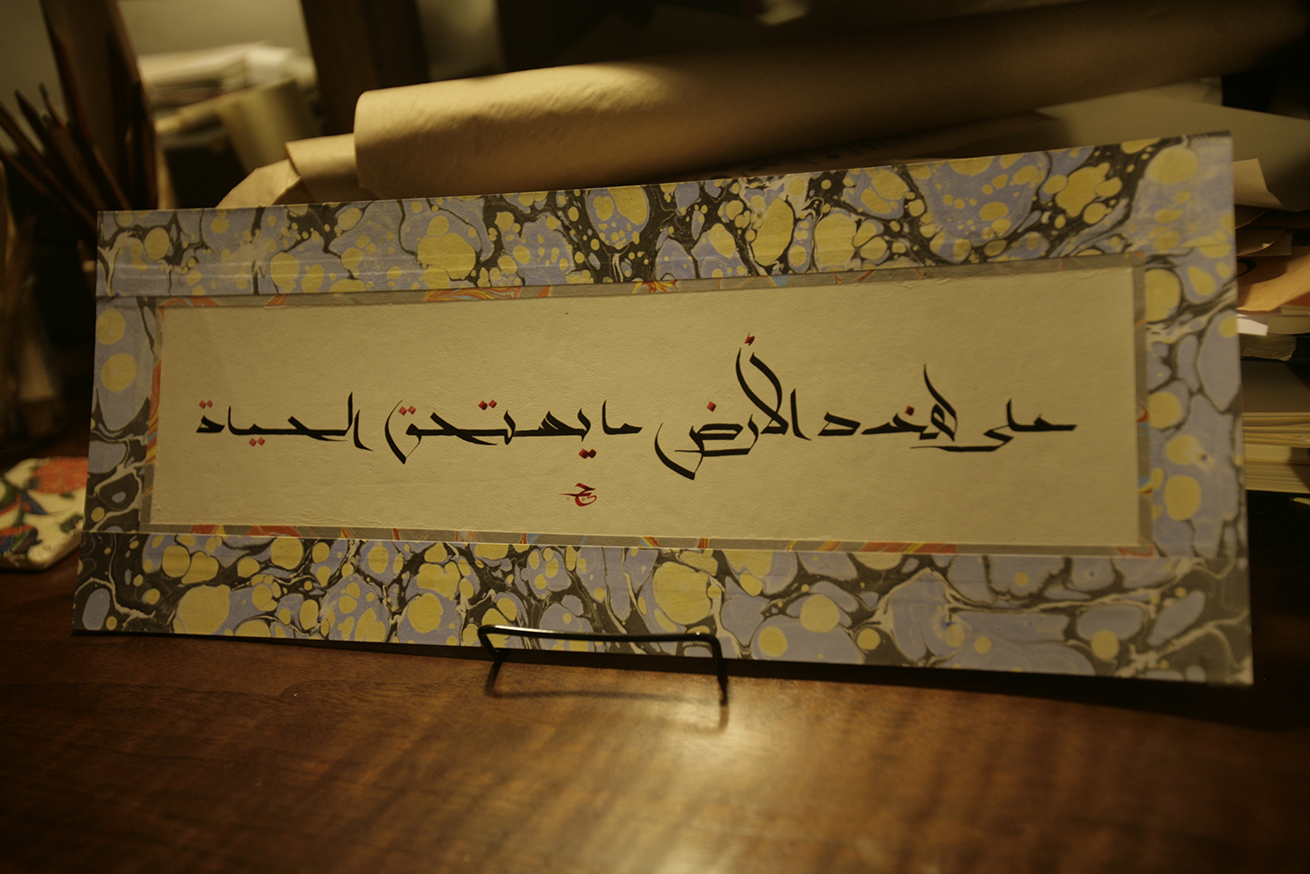 على هذه الأرض ما يستحق الحياة